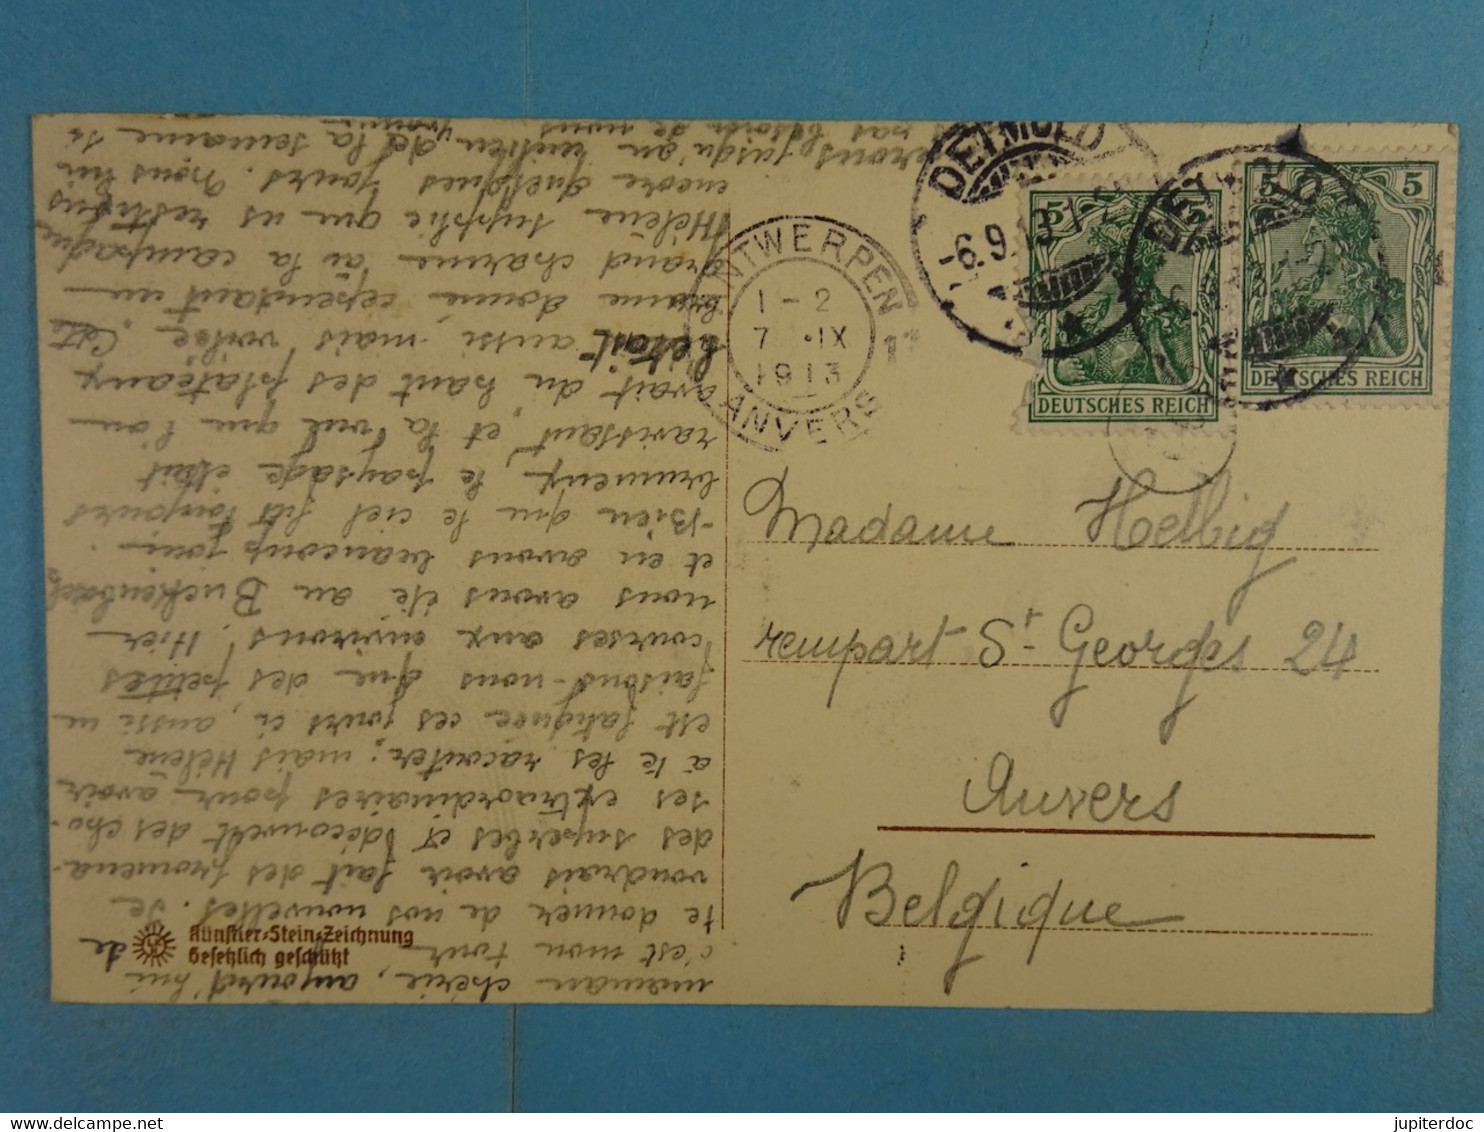 maman chérie, aujourd'hui
c'est mon tour de
te donner de nos nouvelles. Je
voudrais avoir fait des promena-
des superbes et découvert des cho-
ses extraordinaires pour avoir
à te les raconter; mais Hélène
est fatiguée ces jours ci, aussi ne
faisons-nous que des petites
courses aux environs. Hier
nous avons été au
et en avons beaucoup joui
Bien que le ciel fût toujours
brumeux, le paysage était
ravissant et la vue que l'on
avait du haut des plateaux
était aussi mais voilée. Cette
brume donne cependant un
grand charme à la campagne
Hélène supplie que us restions
encore quelques jours. Nous
jusqu'au milieu de la semaine si
pas besoin de nous
Künstler-Stein-Zeichnung
Gesetzlich geschützt
ANTWERPEN
1-2
7 .IX
1913
ANVERS
DETMOLD
-6.9.13
5 5
DEUTSCHES REICH
5 5
DEUTSCHES REICH
Madame Helbig
rempart St Georges 24
Anvers
Belgique
delcampe.net
jupiterdoc